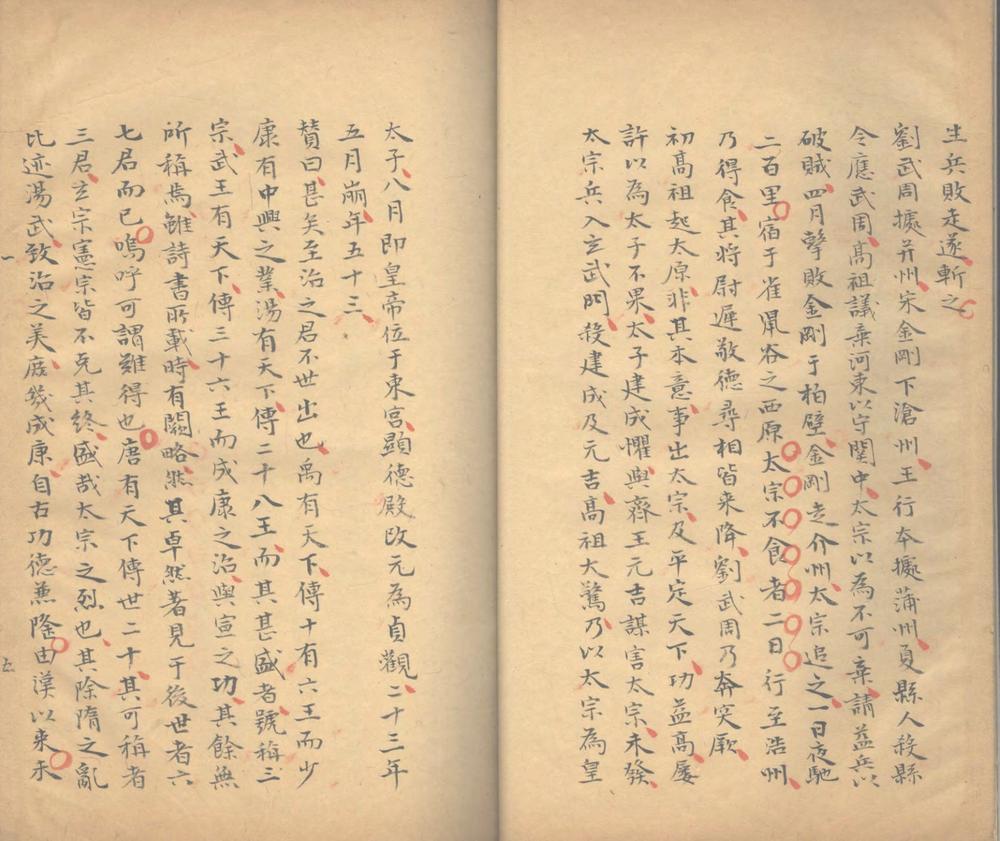 生兵敗走遂斬之
劉武周據并州宋金剛下滄州王行本據蒲州夏縣人殺縣
令應武周高祖議棄河東以守關中太宗以為不可棄請益兵以
破賊四月擊敗金剛于柏壁金剛走介州太宗追之一日夜馳
二百里宿于雀鼠谷之西原太宗不食者二日行至浩州
乃得食其將尉遲敬德尋相皆来降劉武周乃奔突厥
初高祖起太原非其本意事出太宗及平定天下功益高屢
許以為太子不果太子建成懼與齊王元吉謀害太宗未發
太宗兵入玄武門殺建成及元吉高祖大驚乃以太宗為皇
太子八月即皇帝位于東宮顯德殿改元為貞觀二十三年
五月崩年五十三
贊曰甚矣至治之君不世出也禹有天下傳十有六王而少
康有中興之業湯有天下傳二十八王而其甚盛者號稱三
宗武王有天下傳三十六王而成康之治與宣之功其餘無
所稱焉雖詩書所載時有闕略然其卓然著見于後世者六
七君而已嗚呼可謂難得也唐有天下傳世二十其可稱者
三君玄宗憲宗皆不克其終盛哉太宗之烈也其除隋之亂
比迹湯武致治之美庶幾成康自古功德兼隆由漢以来未